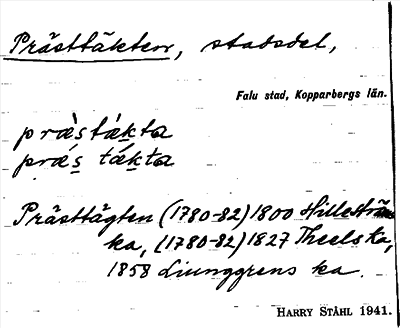 Prästtäkten, stadsdel,
Falu stad, Kopparbergs län.
præ̀stákta
præ´s tákta
Prästtägten (1780-82) 1800 Hilleström
ka, (1780-82) 1827 Theelska,
1858 Liunggrens ka.
HARRY STÅHL 1941.